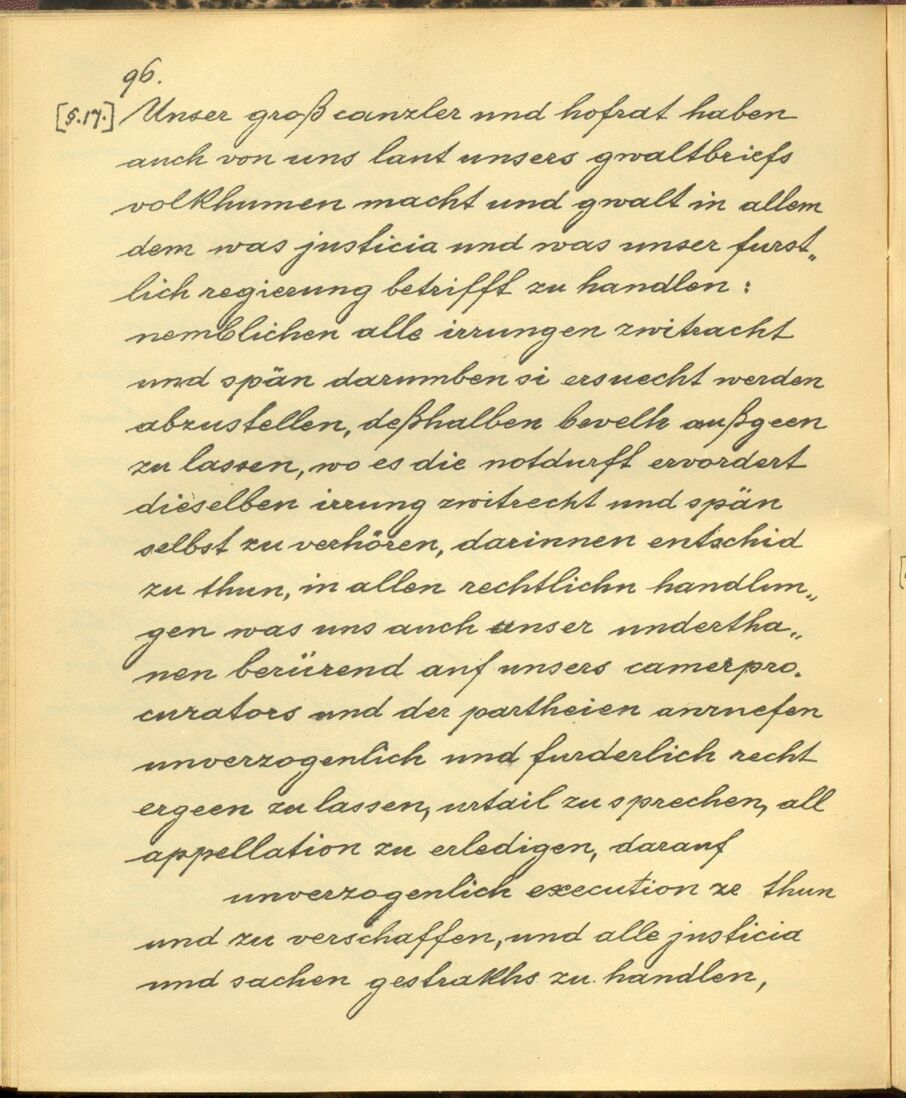 96.
[§.17.] Unser großcanzler und hofrat haben
auch von uns laut unsers gwaltbriefs
volkhumen macht und gwalt in allem
dem was justicia und was unser furst„
lich regierung betrifft zu handlen :
nemblichen alle irrungen zwitracht
und spän darumben si ersuecht werden
abzustellen, deßhalben bevelh außgeen
zu lassen, wo es die notdurft ervordert
dieselben irrung zwitrecht und spän
selbst zu verhören, darinnen entschid
zu thun, in allen rechtlichn handlun„
gen was uns auch unser undertha„
nen berürend auf unsers camerpro.
curators und der partheien anruefen
unverzogenlich und furderlich recht
ergeen zu lassen, urtail zu sprechen, all
appellation zu erledigen, darauf
unverzogenlich execution ze thun
und zu verschaffen, und alle justicia
und sachen gestrakhs zu handlen,